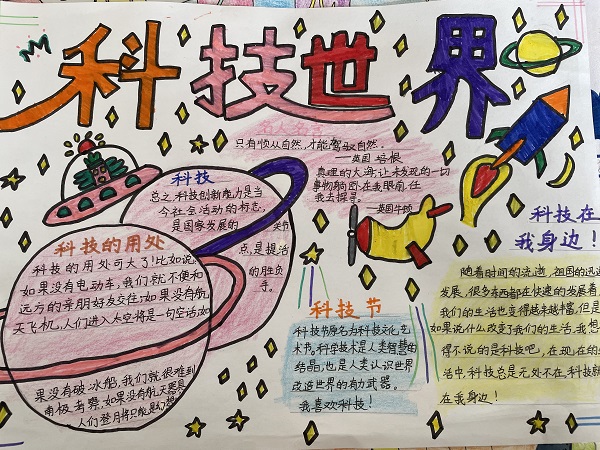 科技世界
名人名言
只有顺从自然,才能驾驭自然。
——英国 培根
真理的大海,让未发现的一切
事物躺卧在我眼前,任
我去探寻。
——英国牛顿
科技
总之,科技创新能力是当
今社会活动的标志,
是国家发展的关节
点,是提活
的胜负
手。
科技的用处
科技的用处可大了!比如说
如果没有电动车,我们就不便和
远方的亲朋好友交往;如果没有航
天飞机,人们进入太空将是一句空话;如
果没有破冰船,我们就很难到
南极考察,如果没有航天器具
人们登月将只能是幻想
科技节
科技节原名为科技文化艺
术节。科学技术是人类智慧的
结晶,也是人类认识世界
改造世界的有力武器。
我喜欢科技!
科技在
我身边!
随着时间的流逝,祖国的迅速
发展,很多东西都在快速的发展着
我们的生活也变得越来越棒,但是
如果说什么改变了我们的生活,我想
得不说的是科技吧,在现在的生
活中,科技总是无处不在,科技就
在我身边!